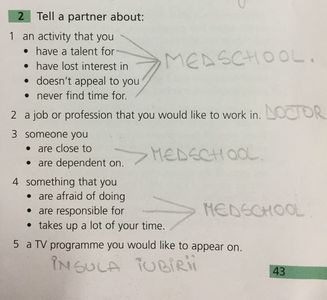 2 Tell a partner about:
1 an activity that you
• have a talent for
• have lost interest in
• doesn't appeal to you
• never find time for.
MEDSCHOOL.
2 a job or profession that you would like to work in. DOCTOR
3 someone you
• are close to
• are dependent on.
MEDSCHOOL.
4 something that you
• are afraid of doing
• are responsible for
• takes up a lot of your time.
MEDSCHOOL
5 a TV programme you would like to appear on.
INSULA IUBIRII
43